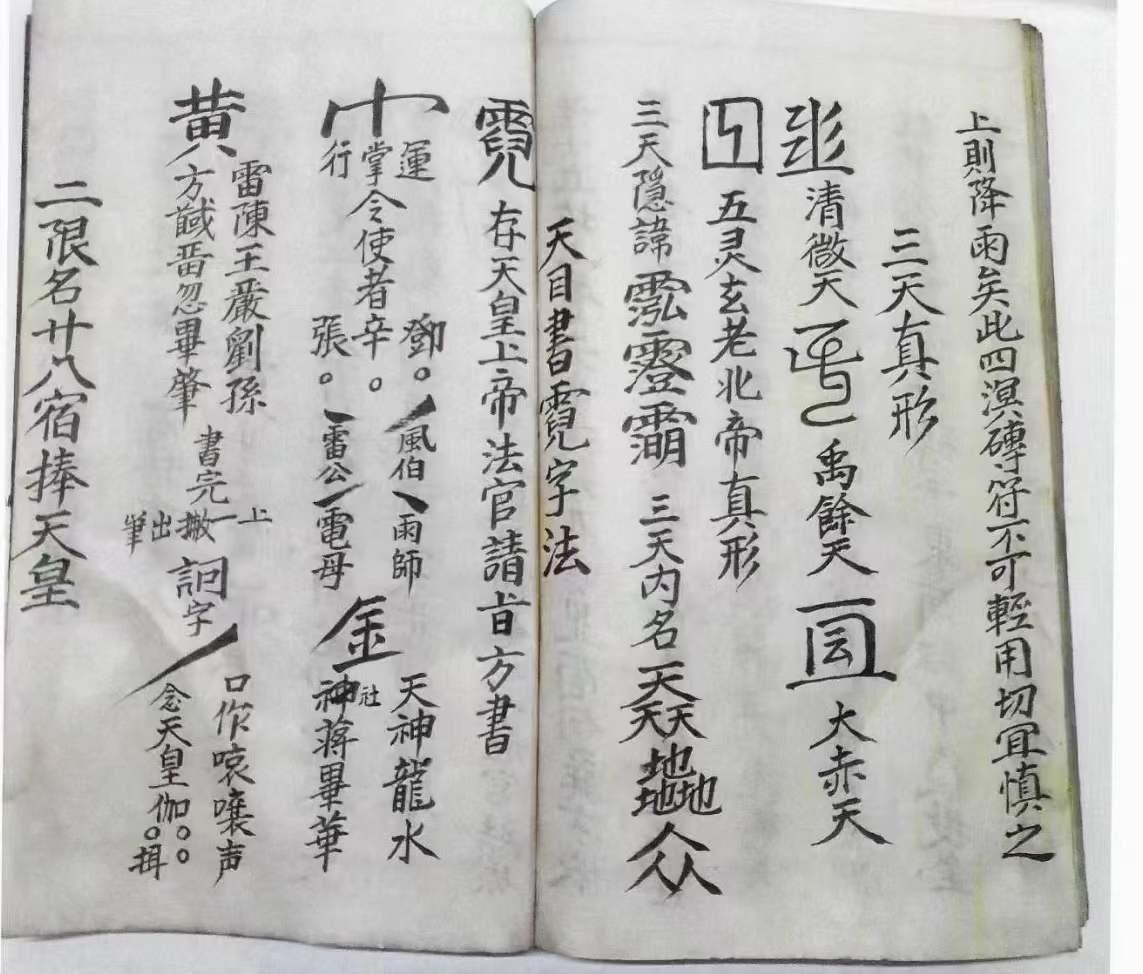 上則降雨矣此四溟磚符不可輕用切宜慎之
三天真形
清微天
禹餘天
大赤天
五灵玄老北帝真形
三天隱諱
三天内名
天天天
地地地
众
天目書霓字法
霓
存天皇上帝法官請旨方書
運
掌
行
令使者
鄧。
辛。
張。
風伯
雨師
雷公
電母
金
天神龍水
社
神蔣畢華
黄
雷陳王嚴劉孫
方
忽畢肇
書完
上一撇出筆
訶字
口作哀嚷声
念天皇伽。。。揖
二限名廿八宿捧天皇